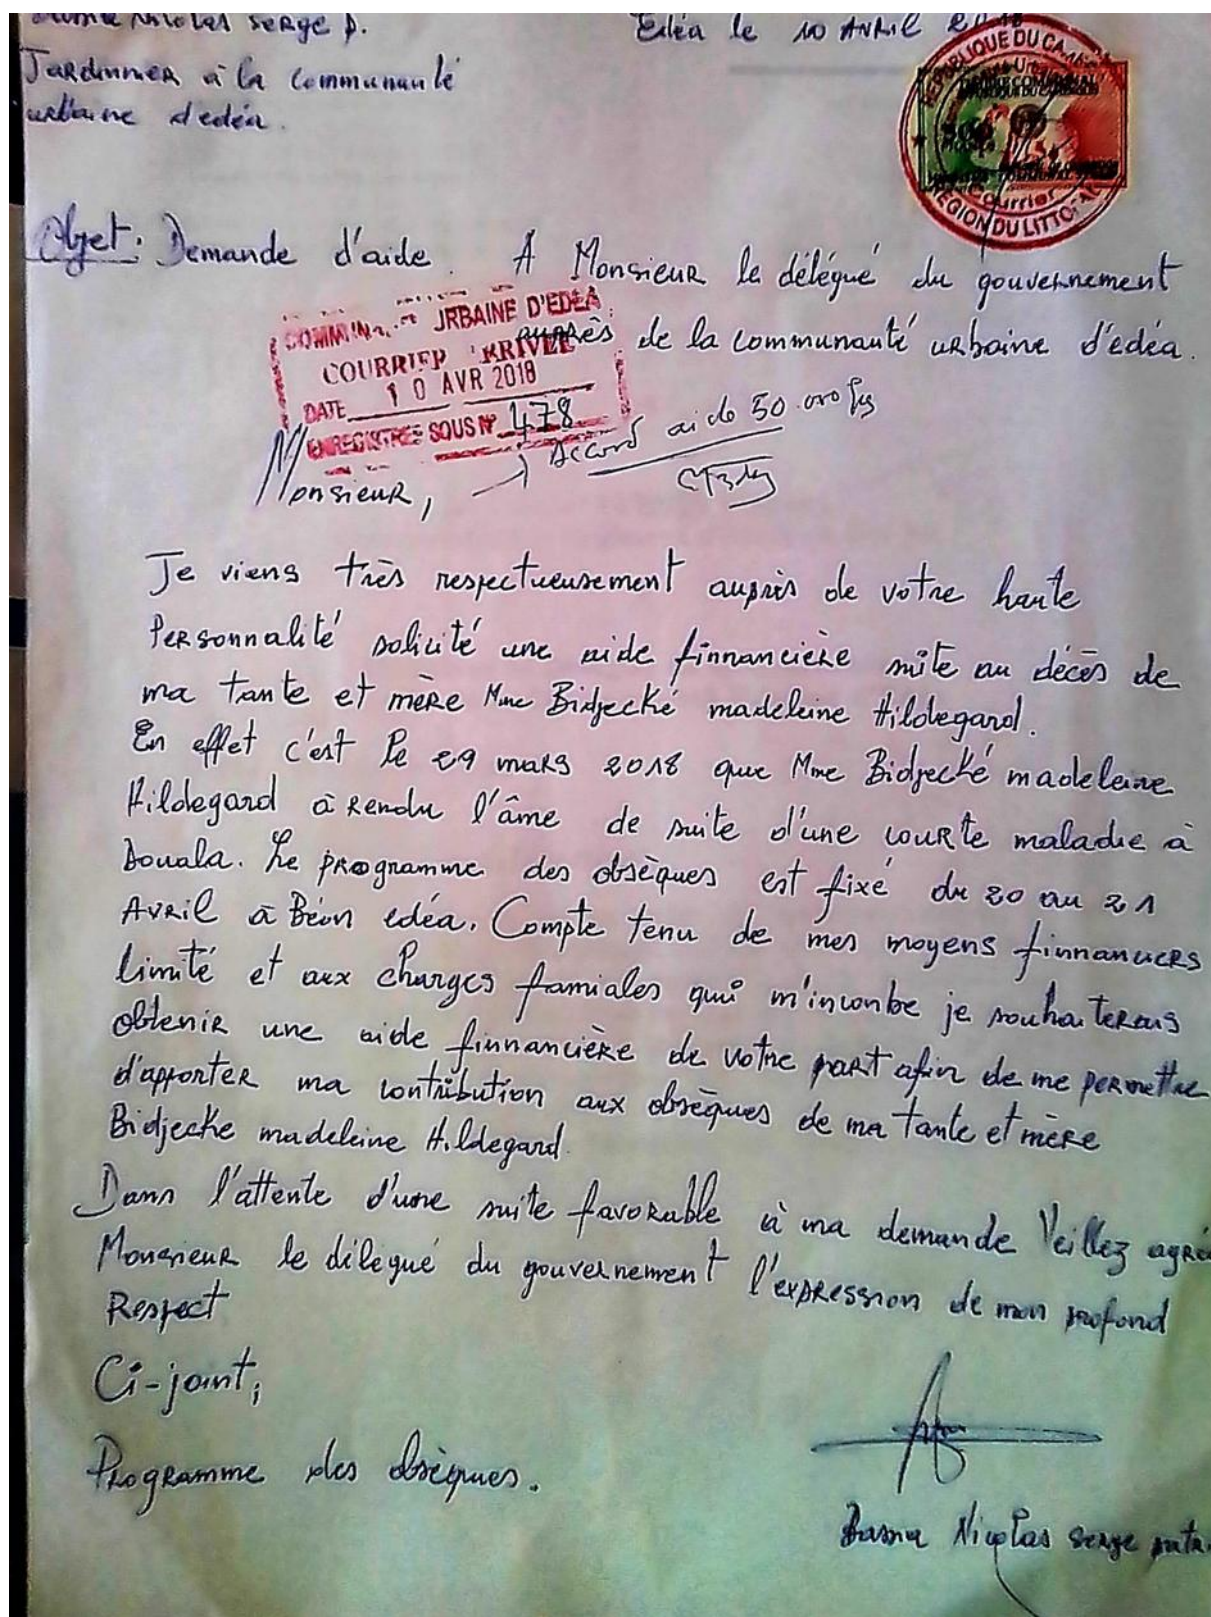 Nicolas Serge P.
Edéa le 10 AVRIL 2018
Jardinnier à la Communauté
urbaine d'edéa.
REPUBLIQUE DU CA
Courrier
REGION DU LITTORAL
Objet: Demande d'aide. A Monsieur le délégué du gouvernement
auprès de la communauté urbaine d'édéa.
URBAINE D'EDEA
COURRIER ARRIVEE
DATE 10 AVR 2018
ENREGISTREE SOUS N° 478
Accord aide 50.000 frs
Monsieur,
Je viens très respectueusement auprès de votre haute
Personnalité solicité une aide finnancière suite au décès de
ma tante et mère Mme Bidjecké madeleine Hildegard.
En effet c'est le 29 mars 2018 que Mme Bidjecké madeleine
Hildegard à rendu l'âme de suite d'une courte maladie à
Douala. Le programme des obsèques est fixé du 20 au 21
Avril à Béon edéa. Compte tenu de mes moyens finnanciers
limité et aux charges famiales qui m'inconbe je souhaiterais
obtenir une aide finnancière de votre part afin de me permettre
d'apporter ma contribution aux obsèques de ma tante et mère
Bidjecke madeleine Hildegard.
Dans l'attente d'une suite favorable à ma demande Veillez agré
Monsieur le délégué du gouvernement l'expression de mon profond
Respect
Ci-joint;
Programme des obsèques.
Nicolas Serge patr